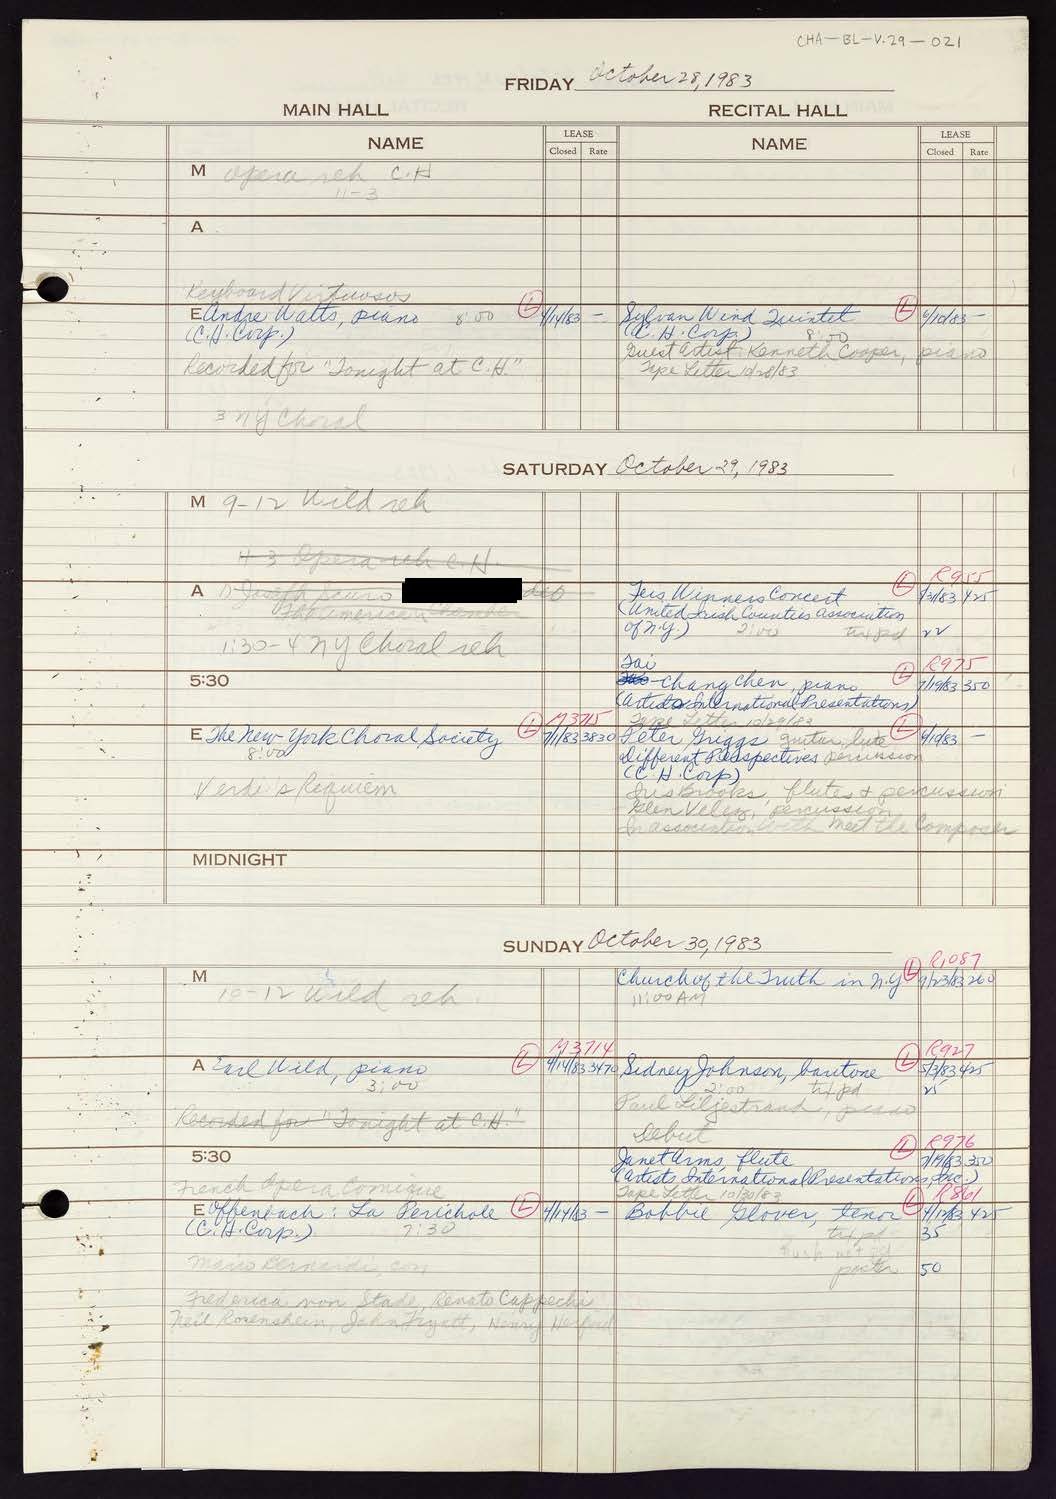 CHA-BL-V.29-021
FRIDAY October 28, 1983
MAIN HALL RECITAL HALL
NAME LEASE NAME LEASE
Closed Rate Closed Rate
M Opera reh C.H
11-3
A
Keyboard Virtuosos
E Andre Watts, piano 8:00 L 4/14/83 -
(C.H. Corp.)
Recorded for "Tonight at C.H."
3 NY Choral
Sylvan Wind Quintet L 6/10/83 -
(C.H. Corp) 8:00
Guest Artist: Kenneth Cooper, piano
Tape Letter 10/28/83
SATURDAY October 29, 1983
M 9-12 Wild reh
11-3 Opera reh C.H.
A Joseph Scuro
The American Chamber
1:30-4 NY Choral reh
Feis Winners Concert L R955
(United Irish Counties Association 5/31/83 425
of N.Y.) 2:00 tx pd 22
5:30
Tai
-Chang Chen, piano L R975 7/19/83 350
(Artists International Presentations)
Tape Letter 10/29/83
E The New York Choral Society L M3715 7/1/83 3830
8:00
Verdi's Requiem
Peter Griggs guitar, lute L 6/10/83 -
Different Perspectives percussion
(C.H. Corp)
Iris Brooks, flutes & percussion
Glen Velez, percussion
In association with Meet the Composer
MIDNIGHT
SUNDAY October 30, 1983
M
10-12 Wild reh.
Church of the Truth in N.Y. L R1087 9/23/83 260
11:00 AM
A Earl Wild, piano L M3714 4/14/83 3470
3:00
Recorded for "Tonight at C.H."
Sidney Johnson, baritone L R927 5/3/83 425
2:00 tx pd 25
Paul Liljestrand, piano
Debut
5:30
Janet Arms, flute L R976 7/19/83 350
(Artists International Presentations, Inc.)
Tape Letter 10/30/83
French Opera Comique
E Offenbach: La Perichole L 4/14/83 -
(C.H. Corp.) 7:30
Mario Bernardi, con
Frederica von Stade, Renato Cappechi
Neil Rosenshein, John Fryatt, Henry Herford
Bobbie Glover, tenor L R861 4/12/83 425
tx pd 35
poster 50